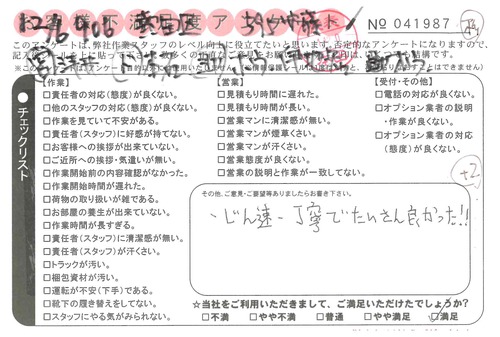 No 041987
このアンケートは、弊社作業スタッフのレベル向上に役立てたいと思います。否定的なアンケートになりますので、
【作業】
□責任者の対応(態度)が良くない。
□他のスタッフの対応(態度)が良くない。
□作業を見ていて不安がある。
□責任者(スタッフ)に好感が持てない。
□お客様への挨拶が出来ていない。
□ご近所への挨拶・気遣いが無い。
□作業開始前の内容確認がなかった。
□作業開始時間が遅れた。
□荷物の取り扱いが雑である。
□お部屋の養生が出来ていない。
□作業時間が長すぎる。
□責任者(スタッフ)に清潔感が無い。
□責任者(スタッフ)が汗くさい。
□トラックが汚い。
□梱包資材が汚い。
□運転が不安(下手)である。
□靴下の履き替えをしてない。
□スタッフにやる気がみられない。
【営業】
□見積もり時間に遅れた。
□見積もり時間が長い。
□営業マンに清潔感が無い。
□営業マンが煙草くさい。
□営業マンが汗くさい。
□営業態度が良くない。
□営業の説明と作業が一致してない。
【受付・その他】
□電話の対応が良くない。
□オプション業者の説明
・作業が良くない。
□オプション業者の対応
(態度)が良くない。
チェックリスト
+2
その他、ご意見・ご要望等ありましたらお書き下さい。
・じん速・丁寧でたいさん良かった!!
☆当社をご利用いただきまして、ご満足いただけたでしょうか?
□不満 □やや不満 □普通 □やや満足 □満足